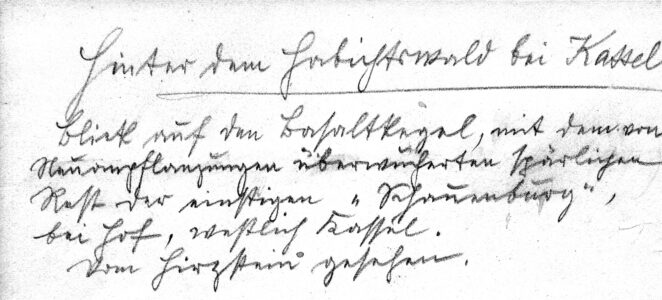 Hinter dem Habichtswald bei Kassel
Blick auf den Basaltkegel, mit dem von
Neuanpflanzungen überwucherten spärlichen
Rest der einstigen „Schauenburg",
bei Hof, westlich Kassel.
Vom Hirzstein gesehen.